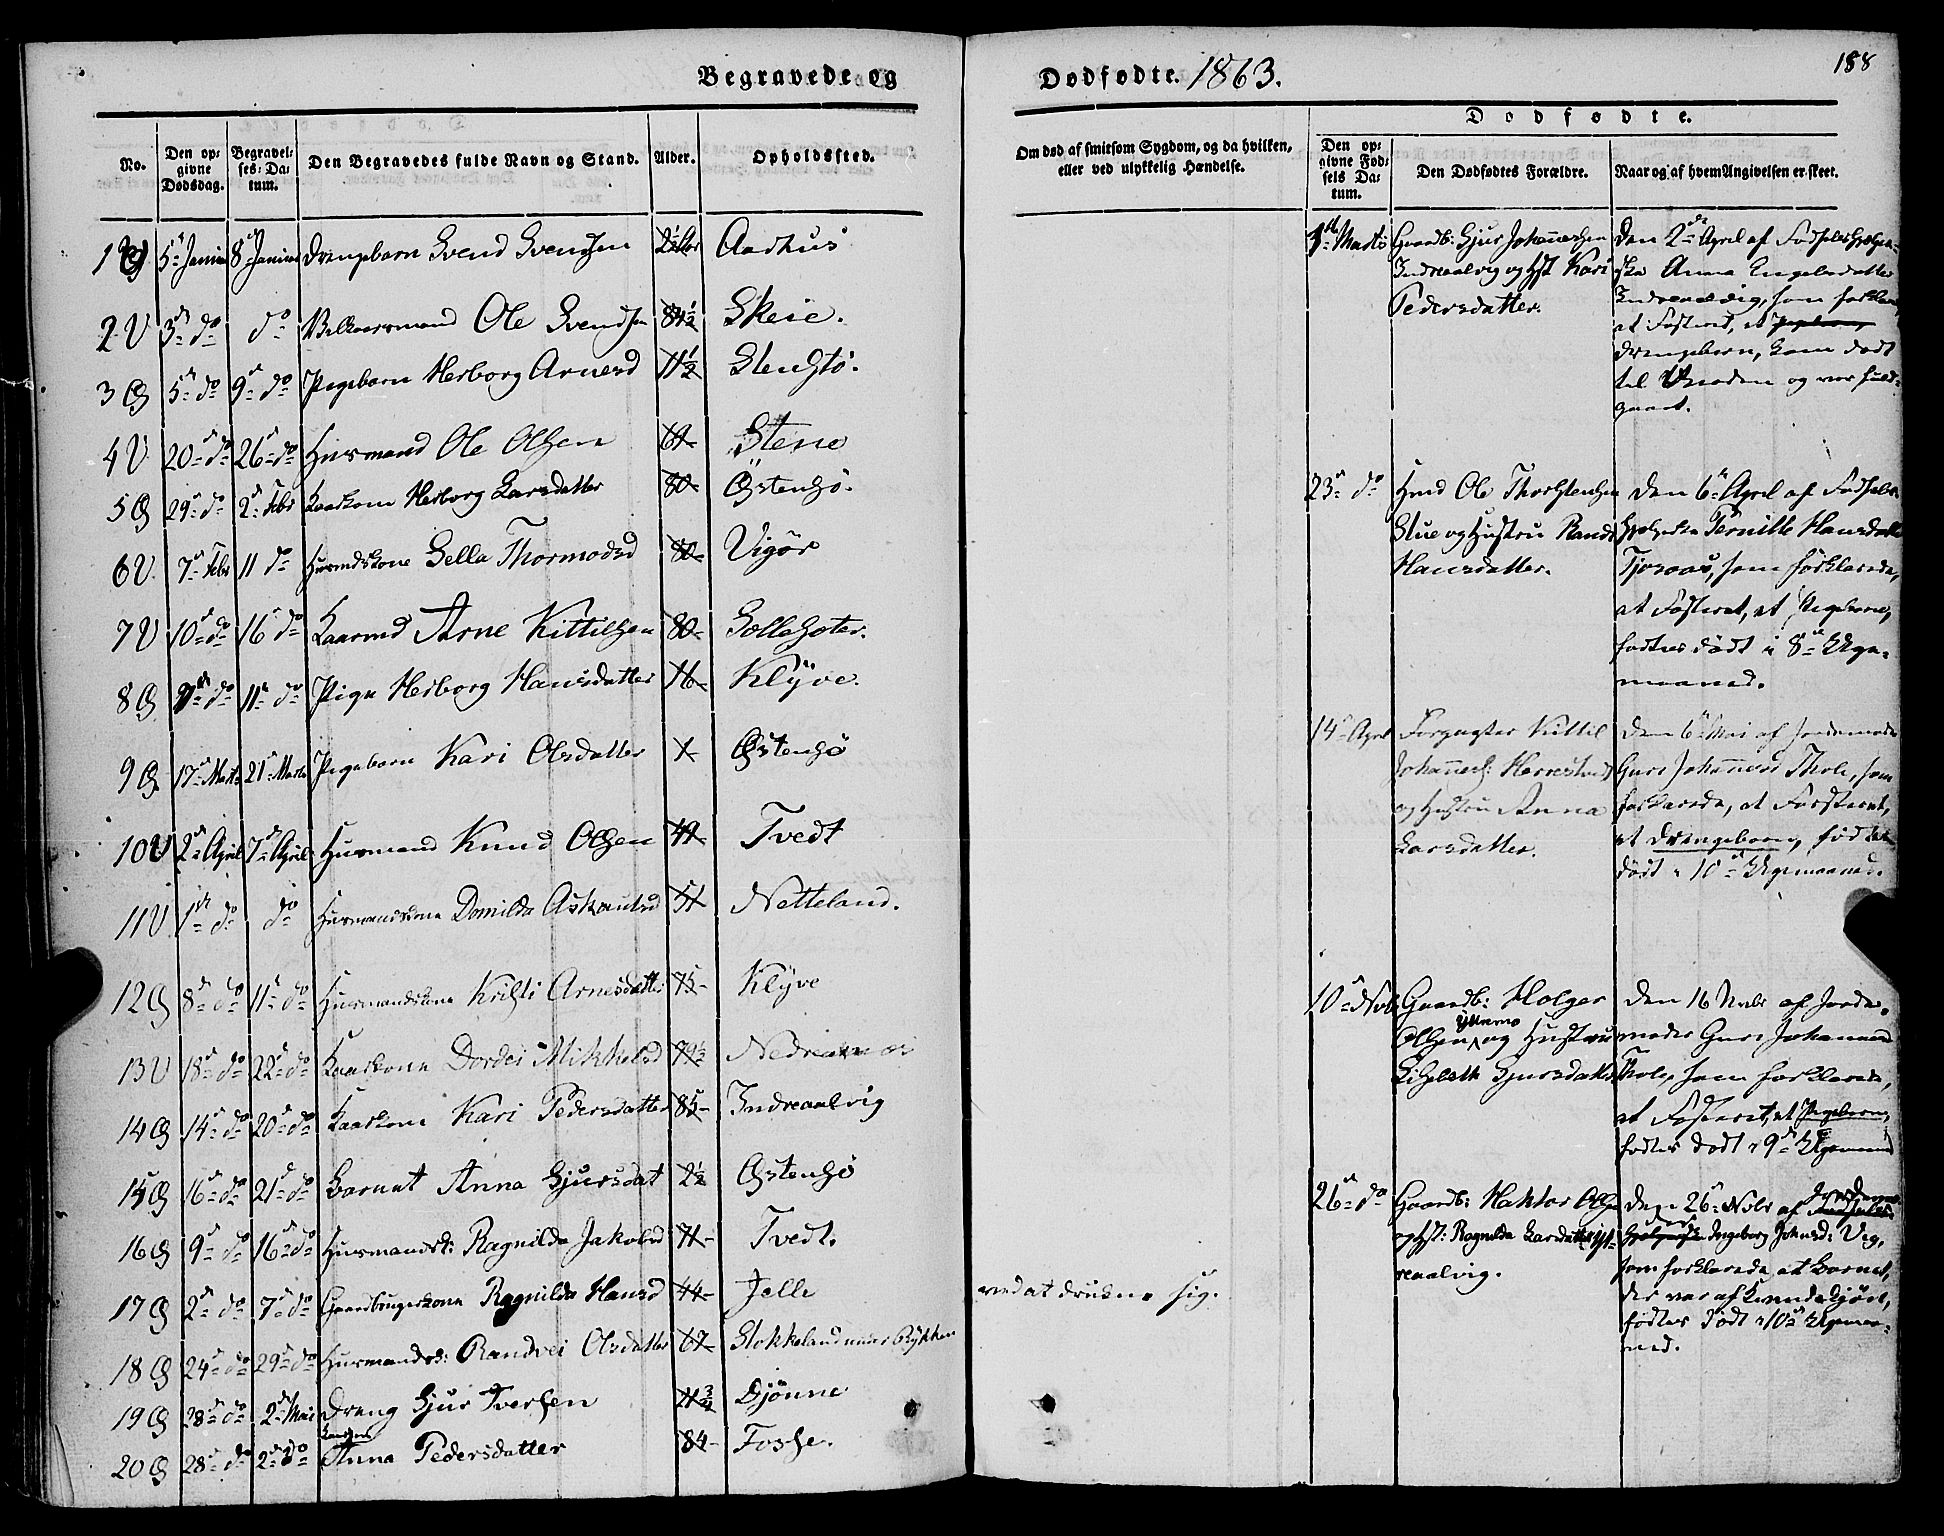 188
Begravede og Dødfødte. 1863.
No. Den opgivne Dødsdag. Begravelses-Datum. Den Begravedes fulde Navn og Stand. Alder. Opholdssted.
1 Ø 5 Januar 8 Januar Drengebarn Svend Svendsen Aarhus
2 V 3 do do Ole Svendsen 84½ Skeie.
3 Ø 5 do 9 do Pigebarn Herborg Arnesd 11½ Stensø.
4 V 20 do 26 do Husmand Ole Olsen 61 Stene
5 Ø 29 do 2 Febr Kaarkone Herborg Larsdatter 80 Østensø.
6 V 7 Febr 11 do Husmdskone Sella Thormodsd 80 Vigør
7 V 10 do 16 do Kaarmd Arne Kittilsen 80
8 Ø do 11 do Pige Herborg Hansdatter 16 Klyve.
9 Ø 17 Marts 21 Marts Pigebarn Kari Olsdatter Østensø
10 V 2 April 7 April Husmand Knud Olsen 49 Tvedt
11 V 1 do do Husmandskone Domilda Askautsd 51 Netteland.
12 Ø 8 do 11 do Husmandskone Kristi Arnesdatter 75 Klyve
13 V 18 do 22 do Kaarkone Dordei Mikkelsd 79½
14 Ø 14 do 20 do Kaarkone Kari Pedersdatter 85 Indreaalvig
15 Ø 16 do 21 do Barnet Anna Gjursdat 2½ Østensø
16 Ø 9 do 16 do Husmandsk: Ragnilda Jakobsd 71 Tvedt.
17 Ø 2 do 7 do Gaardbrugerkone Ragnilda Hansd 44 Jelle
18 Ø 24 do 29 do Husmandsk: Randvei Olsdatter 67 Stokkeland under Rykken
19 Ø 28 do 2 Mai Dreng Gjur Iversen Djønne
20 Ø 28 do 2 do Anna Pedersdatter 84 Fosse.
Om død af smitsom Sygdom, og da hvilken,
eller ved ulykkelig Hændelse.
ved at drukne sig.
Dødfødte.
Den opgivne Fødsels Datum. Den Dødfødtes Forældre. Naar og af hvem Angivelsen er skeet.
1 Marts Gaardb: Gjur Johannessen
Indreaalvig og Hst Kari
Pedersdatter.
Den 2 April af Fødselshjælper-
ske Anna Engelsdatter
Indreaalvig, som forklarer,
at Fosteret, et
Drengebarn, kom dødt
til Verden og var fuld-
gaaet.
23 do Hmd Ole Thorstensen
Stue og Hustru Randi
Hansdatter.
Den 6 April af Fødsels-
hjælperske Pernille Hansdatter
Tjoraas, som forklarede,
at Fosteret, et Pigebarn,
fødtes dødt i 8 Svgr-
maaned.
14 April Forpagter Kittil
Johannes: Herrestvedt
og Hustru Anna
Larsdatter.
Den 6 Mai af Jordemoder
Guri Johannesd Thole, som
forklarede, at Fosteret,
et Drengebarn, fødtes
dødt i 10
10 Novb Gaardb: Holger
Olsen Ytterno og Hustru
Lisebeth Gjursdatter
Den 16 Novbr af Jorde-
moder Guri Johannesd
Thole, som forklarede,
at Fosteret, et Pigebarn,
fødtes dødt i 9
26 do Gaardb: Haktor Olsen
og Hst: Ragnilda Larsdatter
Den 26 Novbr af Jordemoder
Ingeborg Johnsd: Vig,
som forklarede, at Barnet,
der var af Kvindekjøn,
fødtes dødt i 10